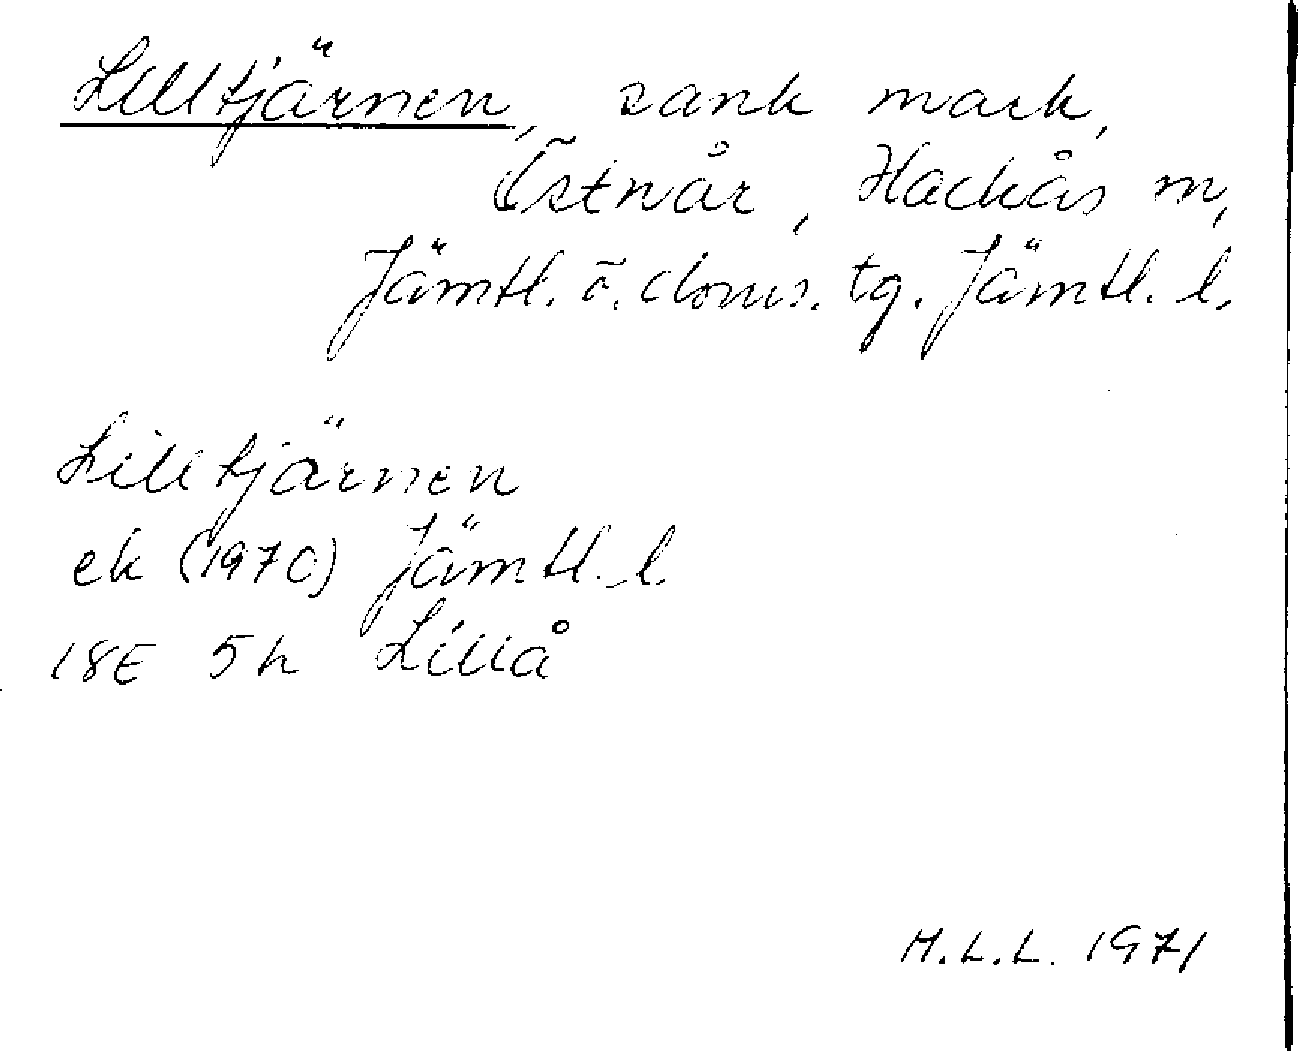 Lilltjärnen, sank mark,
Östnår, Hackås sn,
Jämtl. ö. doms. tg. Jämtl. l.
Lilltjärnen
ek (1970) Jämtl. l.
18E 5h Lillå
M.L.L. 1971